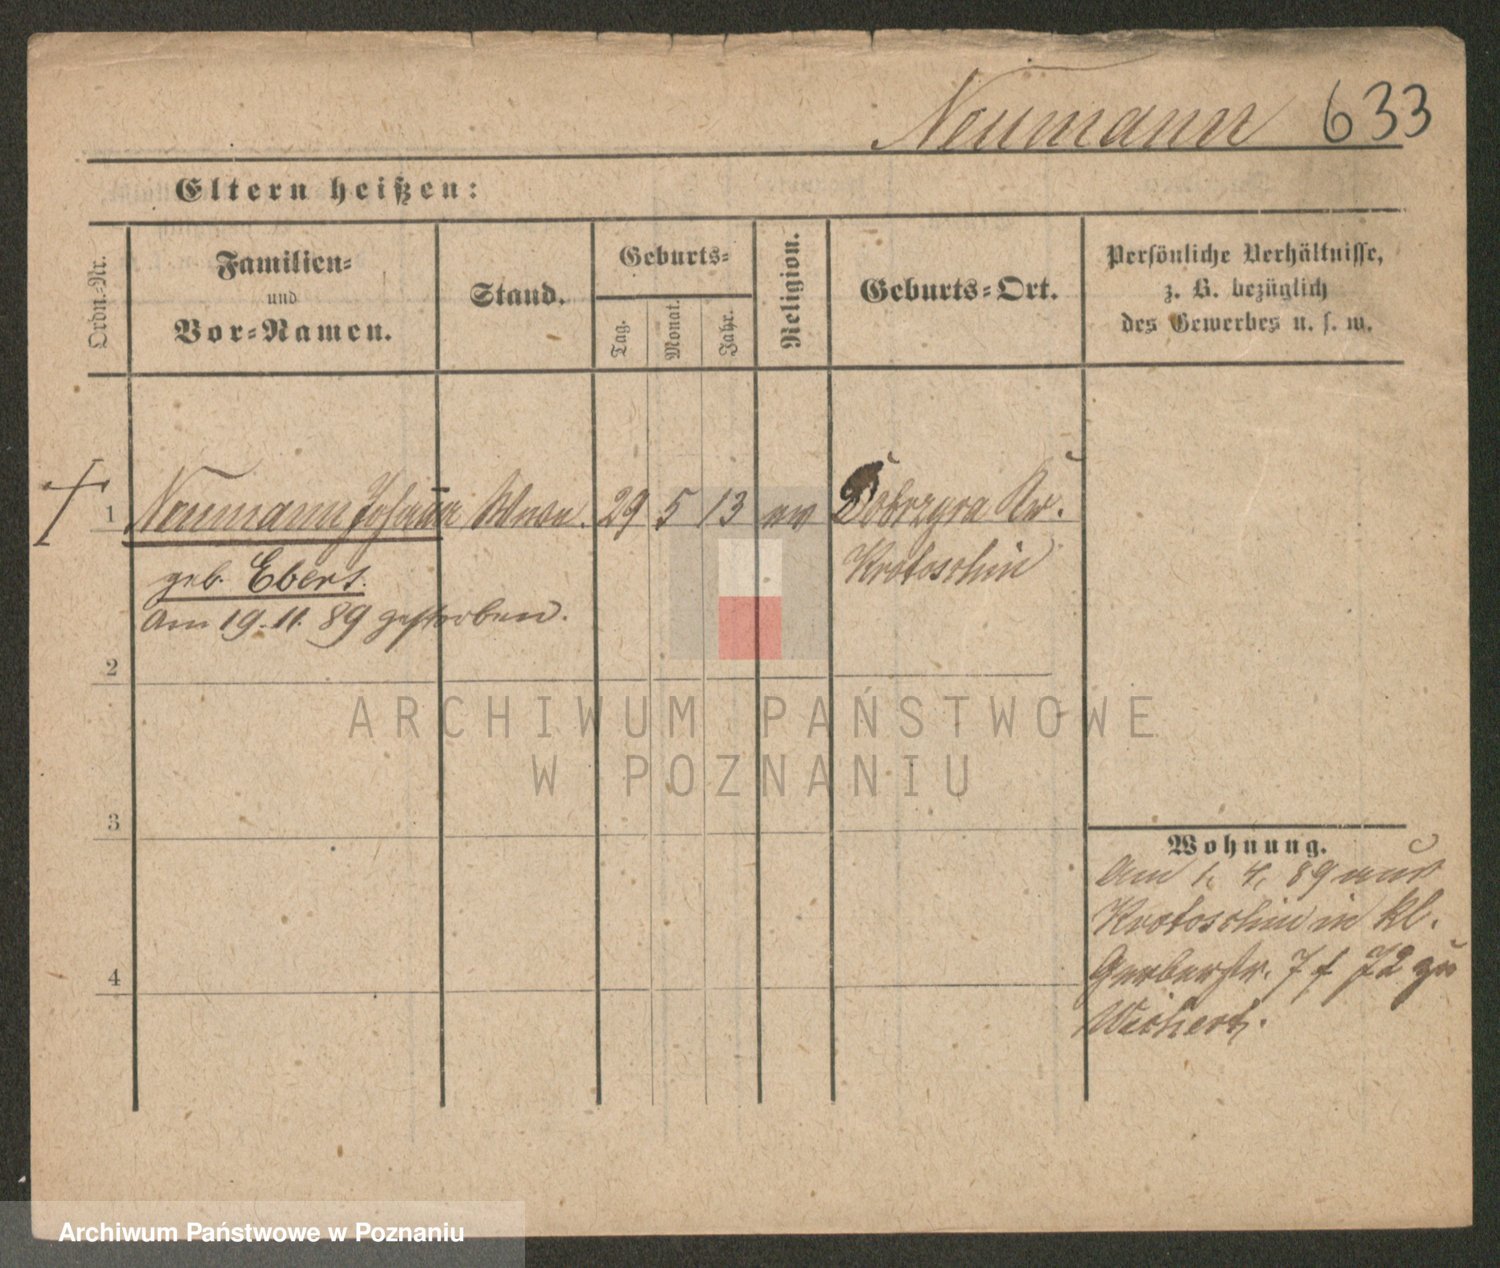 Neumann 633
Eltern heißen:
Ordn.-Nr.
Familien-
und
Vor-Namen.
Stand.
Geburts-
Tag.
Monat.
Jahr.
Religion.
Geburts-Ort.
Persönliche Verhältnisse,
z. B. bezüglich
des Gewerbes u. s. w.
1 Neumann 29 5 13 ev Dobrzyca Kr.
Krotoschin
geb. Ebert.
Am 19. 11. 89 gestorben.
2
3
4
Wohnung.
Am 1. 4. 89 aus
Krotoschin in kl.
Gerberstr. 7 f 72 zu
Wichert.
ARCHIWUM PAŃSTWOWE
W POZNANIU
Archiwum Państwowe w Poznaniu